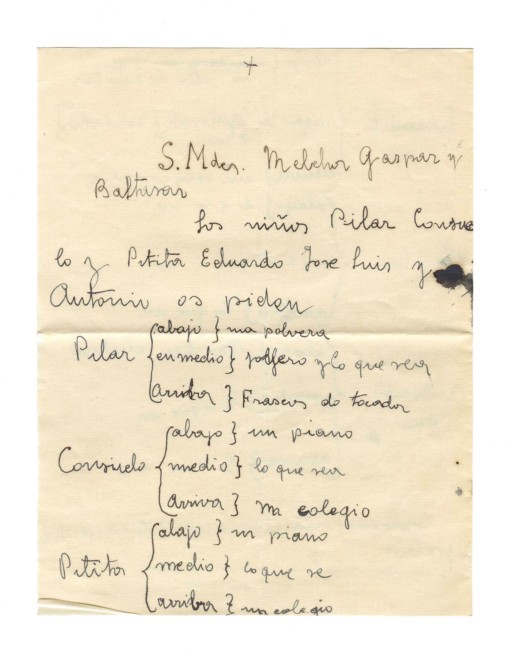 +
S. Mdes. Melchor Gaspar y
Baltasar
Los niños Pilar Consue
lo y Pitita Eduardo Jose Luis y
Antonio os piden
Pilar { abajo } una polvera
en medio } y lo que sea
arriba } Frascos de tocador
Consuelo { abajo } un piano
medio } lo que sea
arriva } un colegio
Pitita { abajo } un piano
medio } lo que se
arriba } un colegio